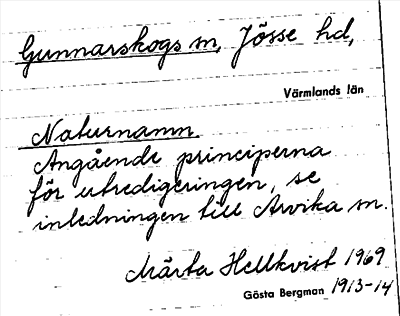 Gunnarskogs sn, Jösse hd,
Värmlands län
Naturnamn
Angående principerna
för utredigeringen, se
inledningen till Arvika sn.
Märta Hellkvist 1969
Gösta Bergman 1913-14